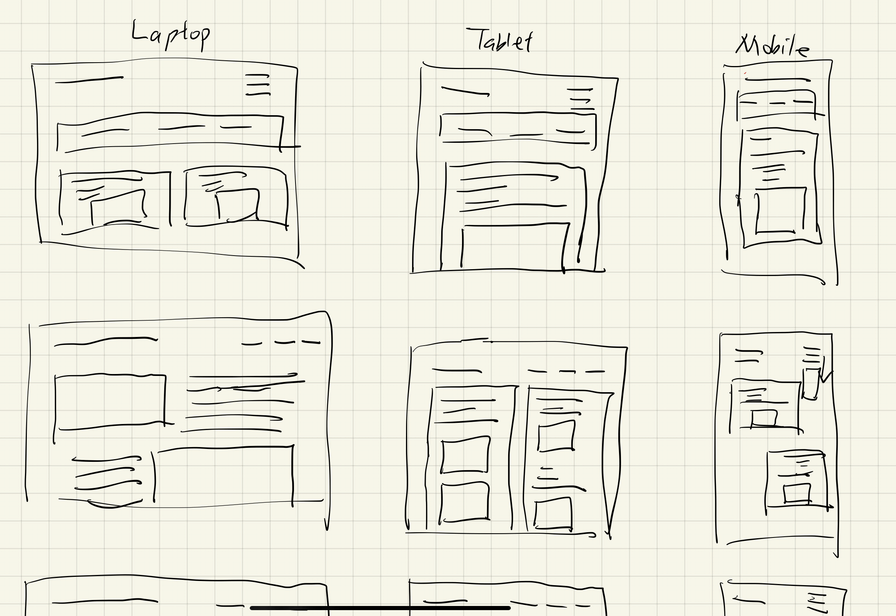 Laptop
Tablet
Mobile